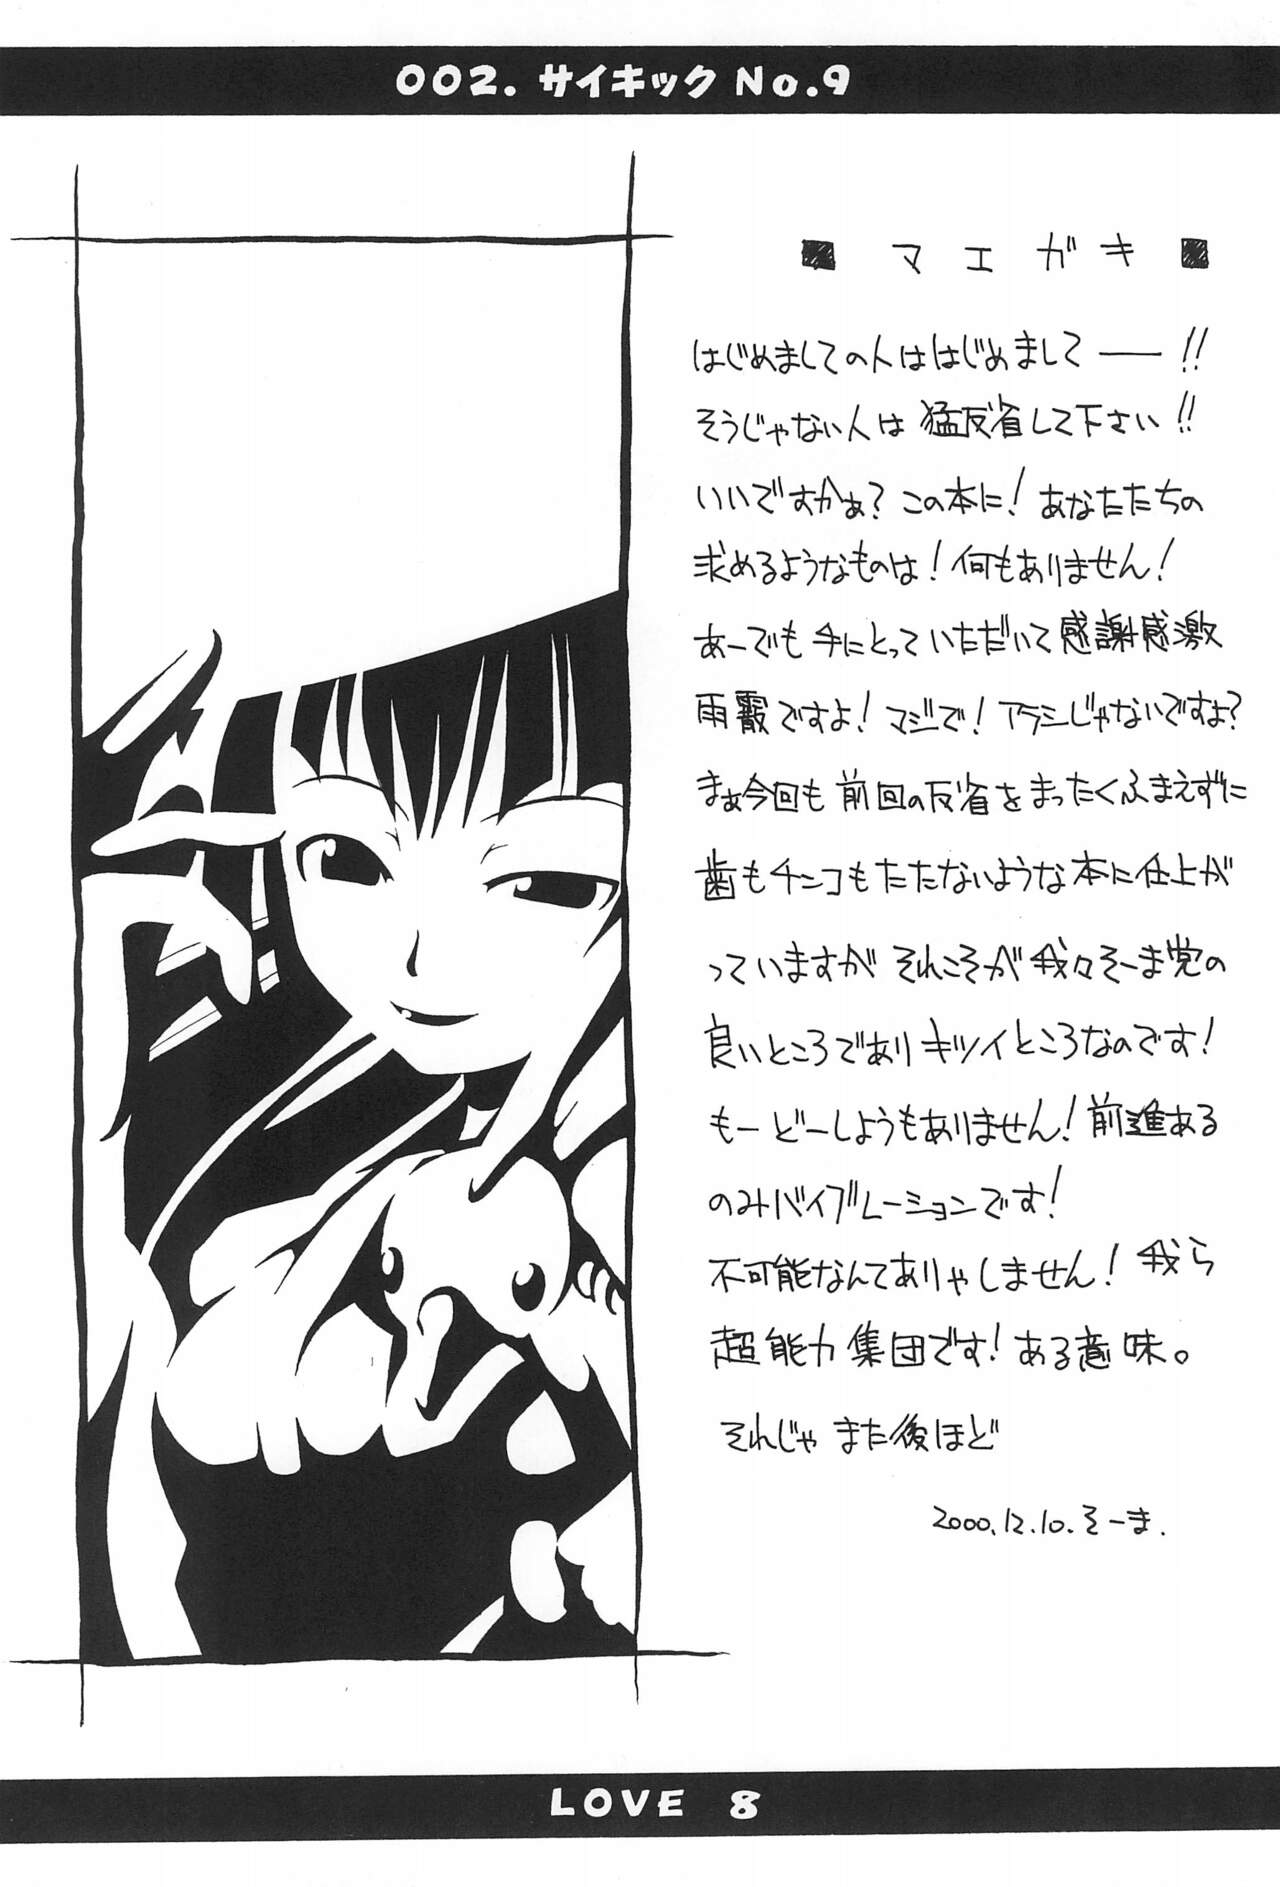 002. サイキック No.9
■ マエガキ ■
はじめましての人ははじめまして——!!
そうじゃない人は猛反省して下さい!!
いいですかぁ?この本に!あなたたちの
求めるようなものは!何もありません!
あーでも手にとっていただいて感謝感激
雨霰ですよ!マジで!アラシじゃないですよ?
まぁ今回も前回の反省をまったくふまえずに
歯もチンコもたたないような本に仕上が
っていますがそれこそが我々そーま党の
良いところでありキツイところなのです!
もーどーしようもありません!前進ある
のみバイブレーションです!
不可能なんてありゃしません!我ら
超能力集団です!ある意味。
それじゃまた後ほど
2000.12.10.そーま.
LOVE 8